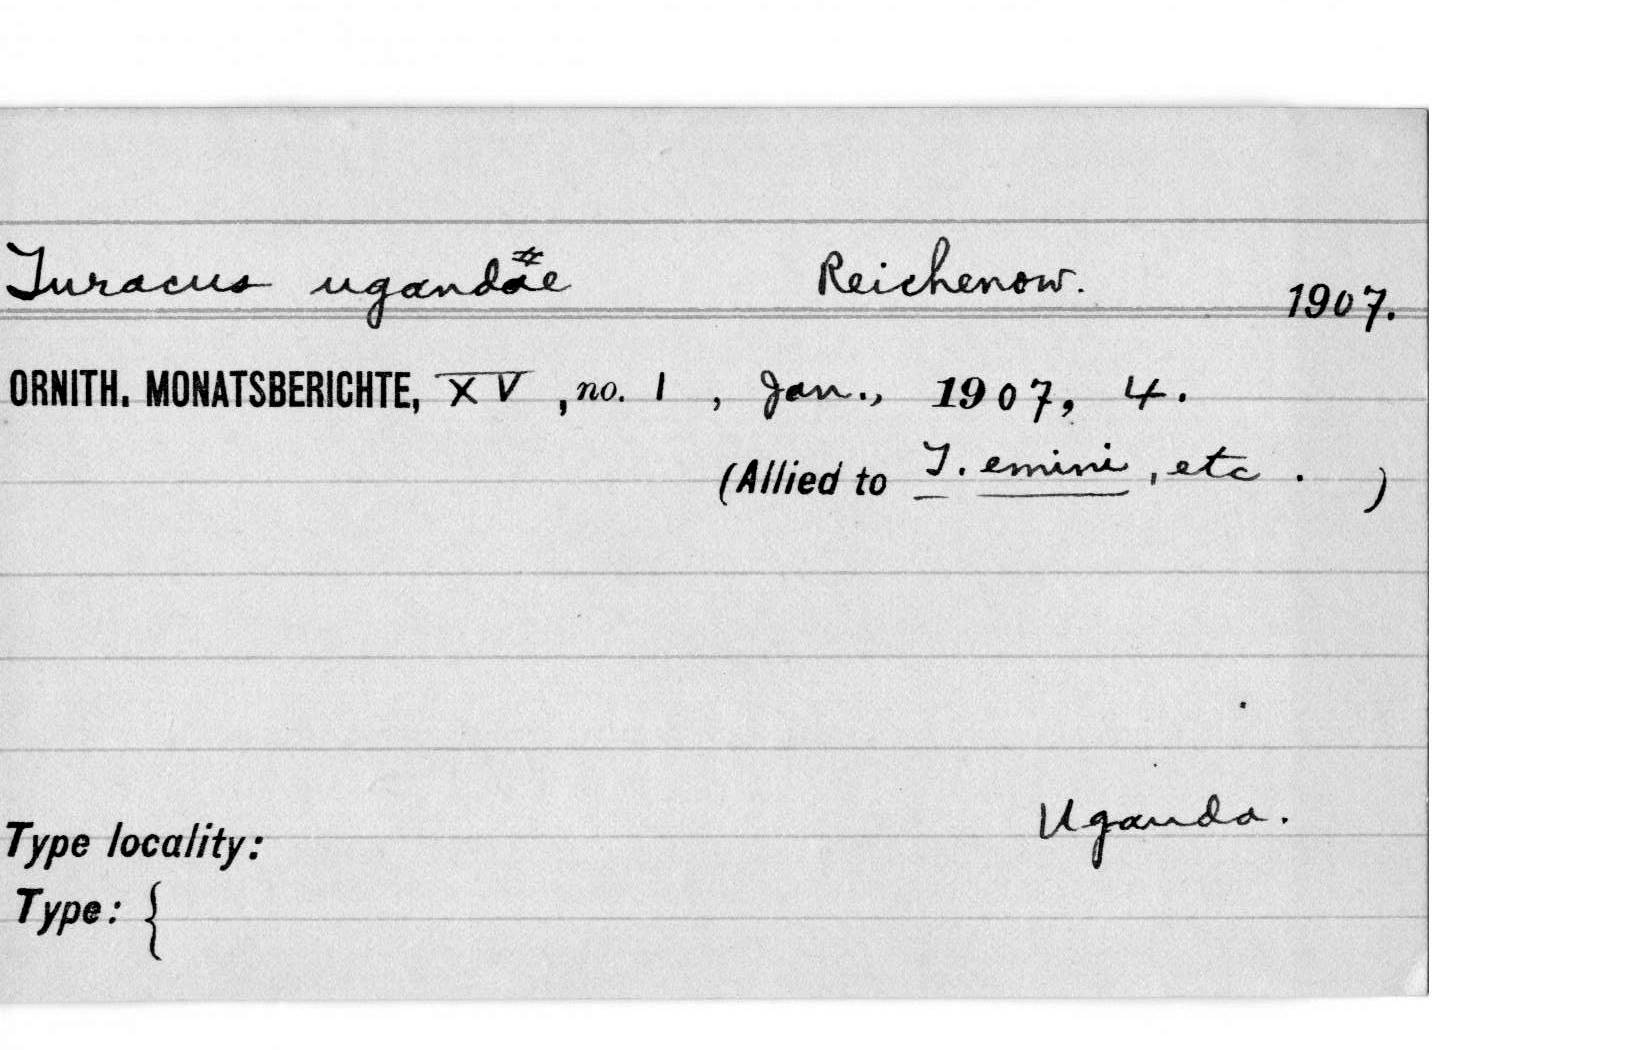 Turacus ugandae Reichenow. 1907.
ORNITH. MONATSBERICHTE, XV, no. 1, Jan., 1907, 4.
(Allied to T. emini, etc. )
Uganda.
Type locality:
Type: {